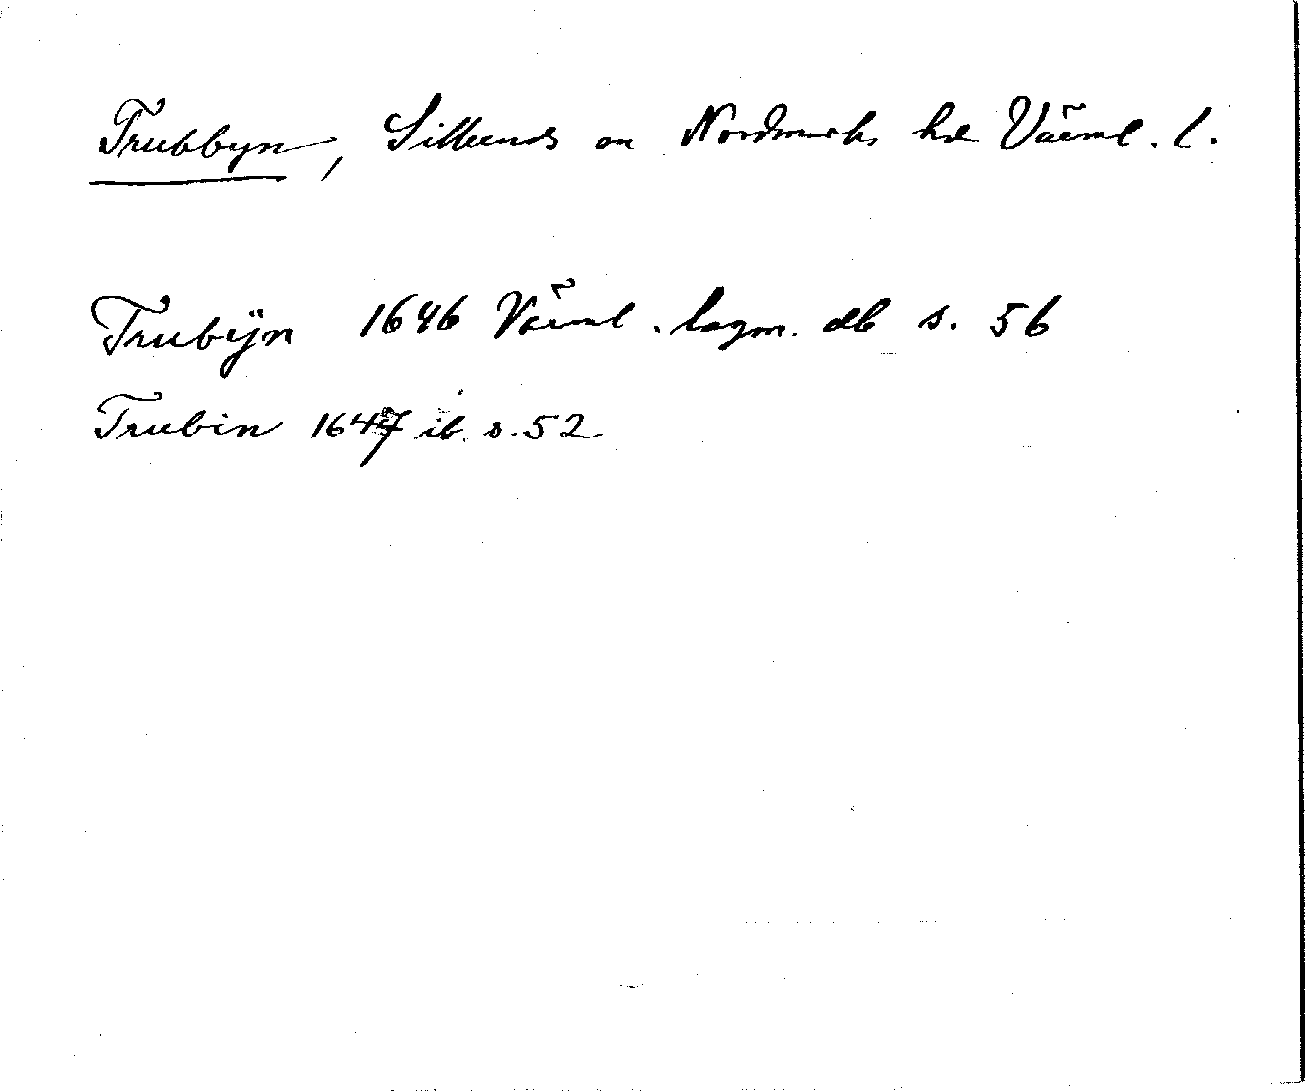 Trubbyn, Silleruds sn Nordmarks hd Värml. l.
Trubÿn 1646 Värml. lagm. db s. 56
Trubin 1647 ib. s. 52